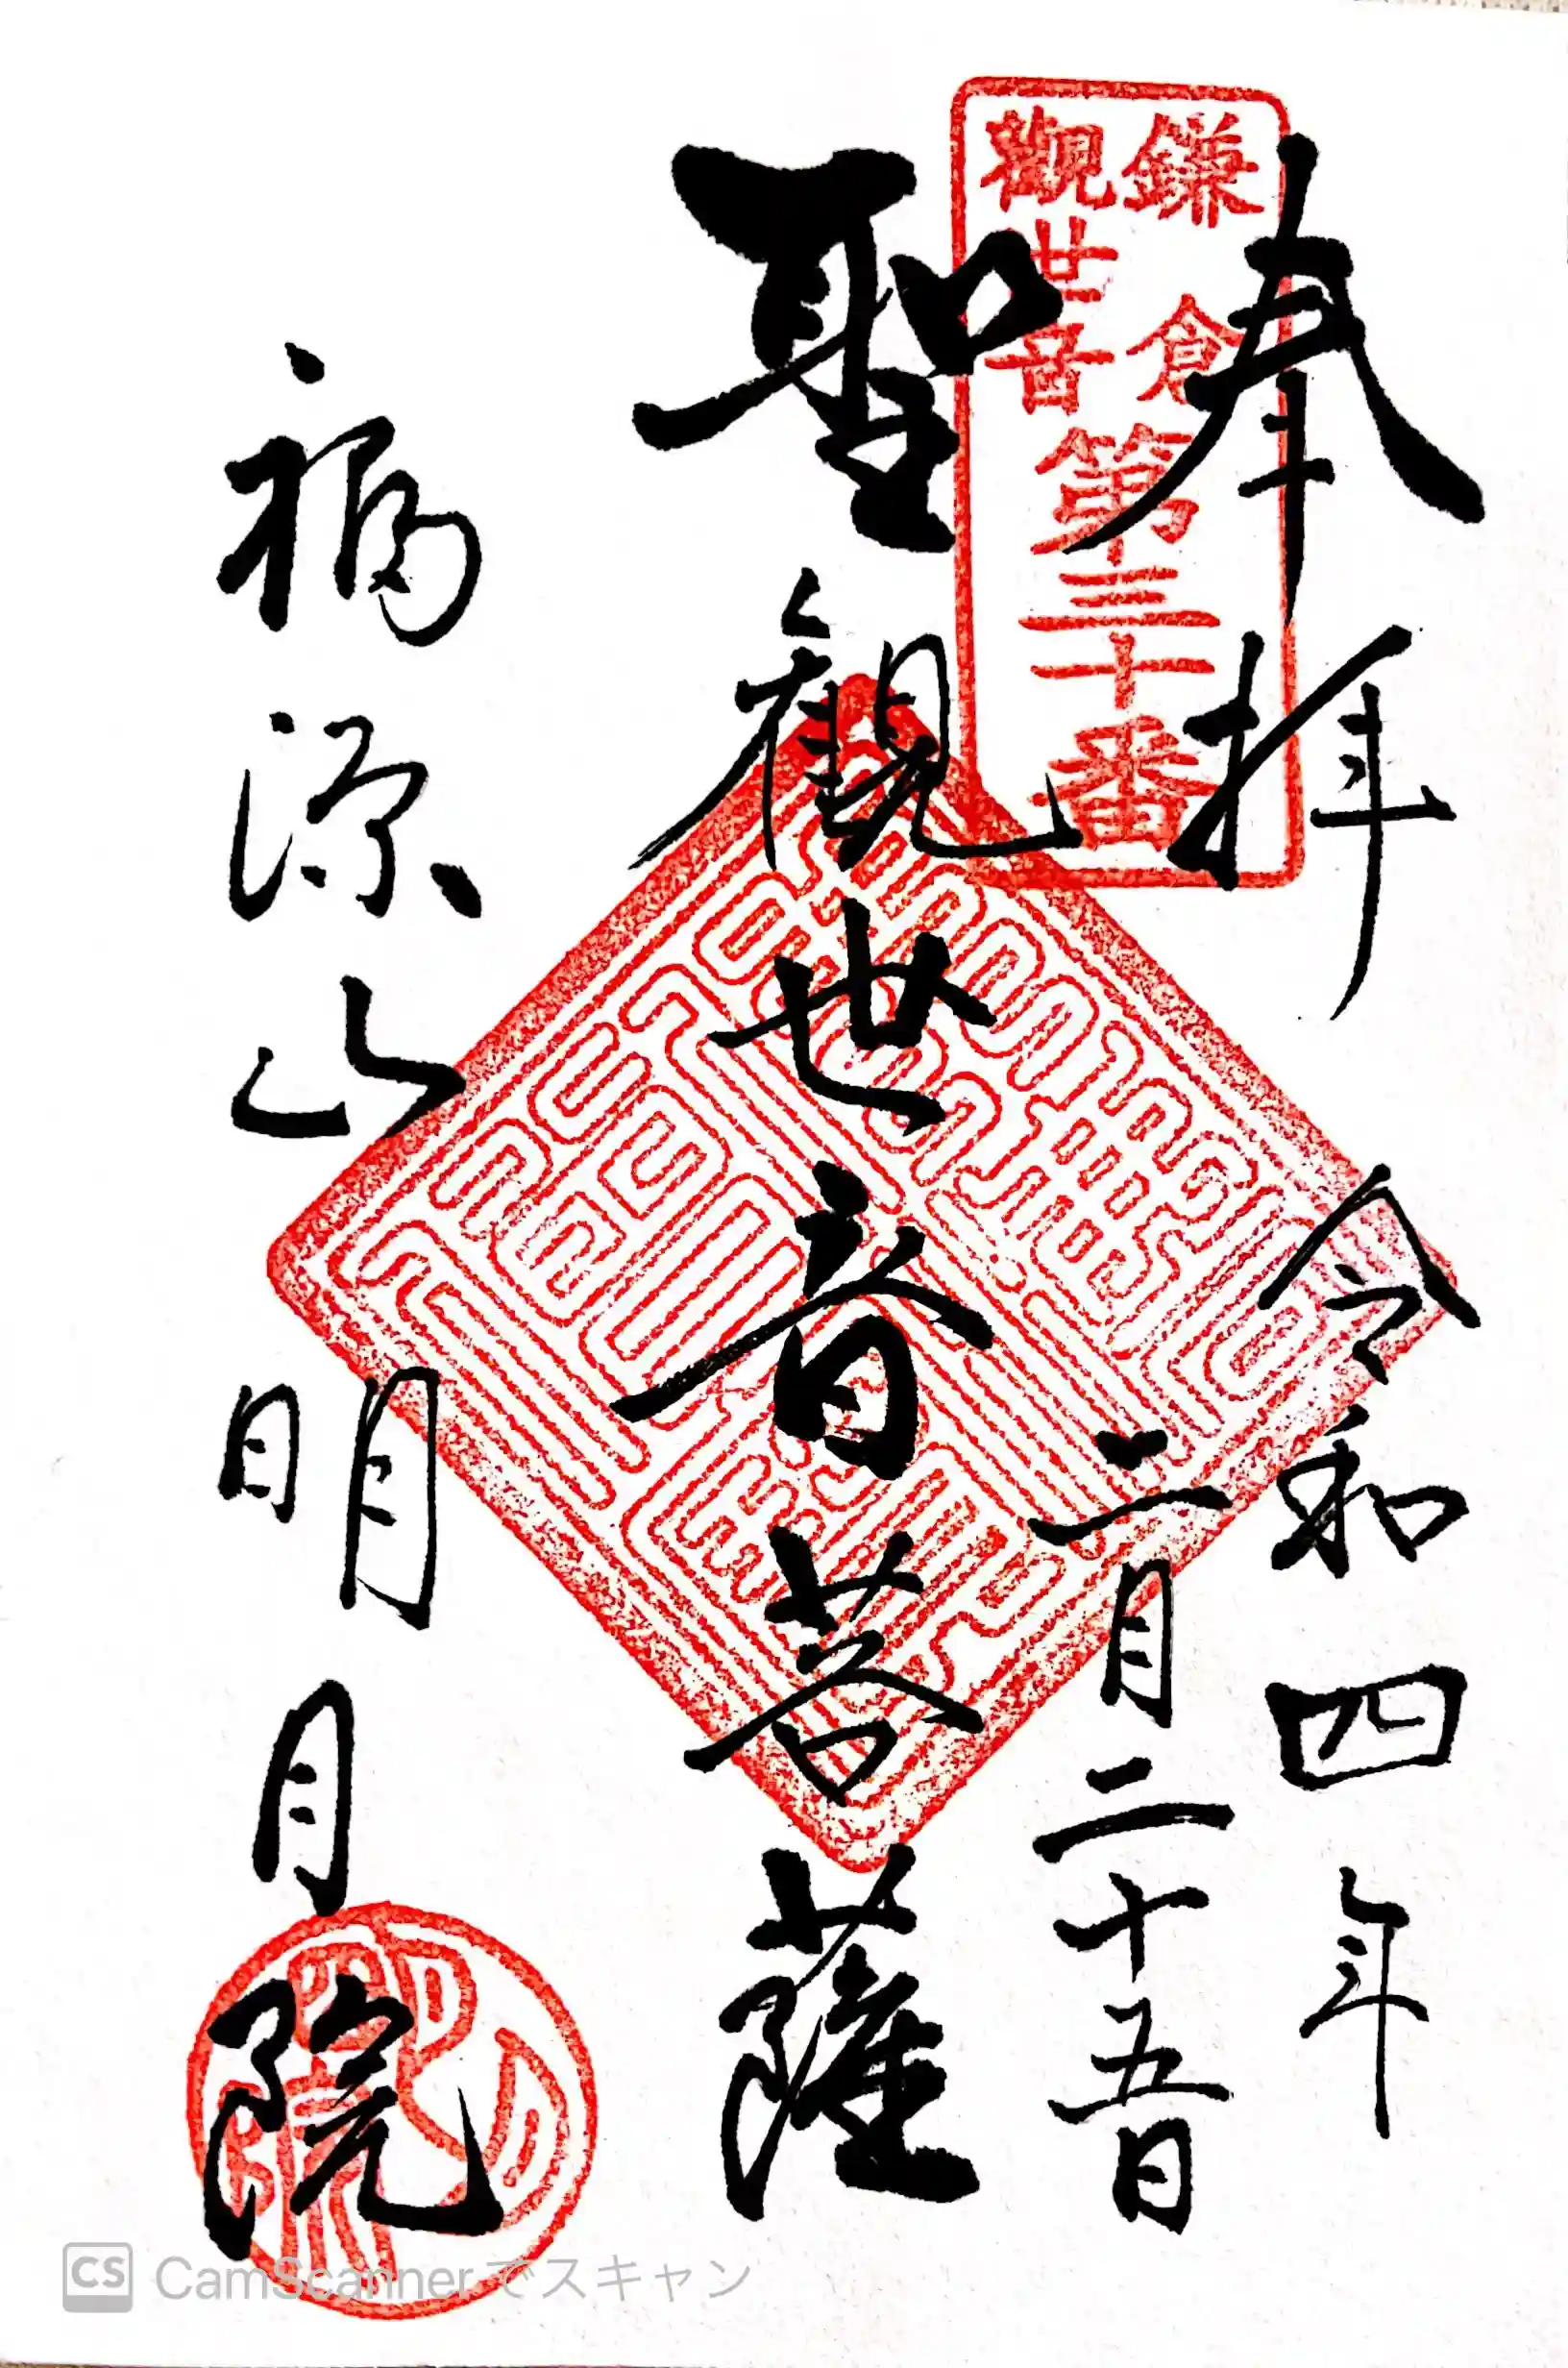 奉拝
令和四年
二月二十五日
鎌倉
觀世音
第三十番
聖観世音菩薩
福源山
明月院
CS CamScannerでスキャン